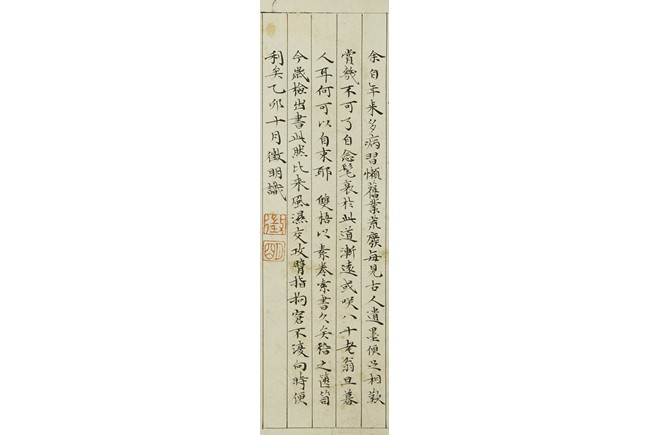 余自年来多病習懶舊業荒廢每見古人遺墨便足相歎
賞幾不可了自念髦衰於此道漸遠或咲八十老翁旦暮
人耳何可以自束耶 雙梧以素卷索書久矣稽之篋笥
今歲檢出書此然比来風濕交攻臂指拘窘不復向時便
利矣乙卯十月徵明識
徵
明